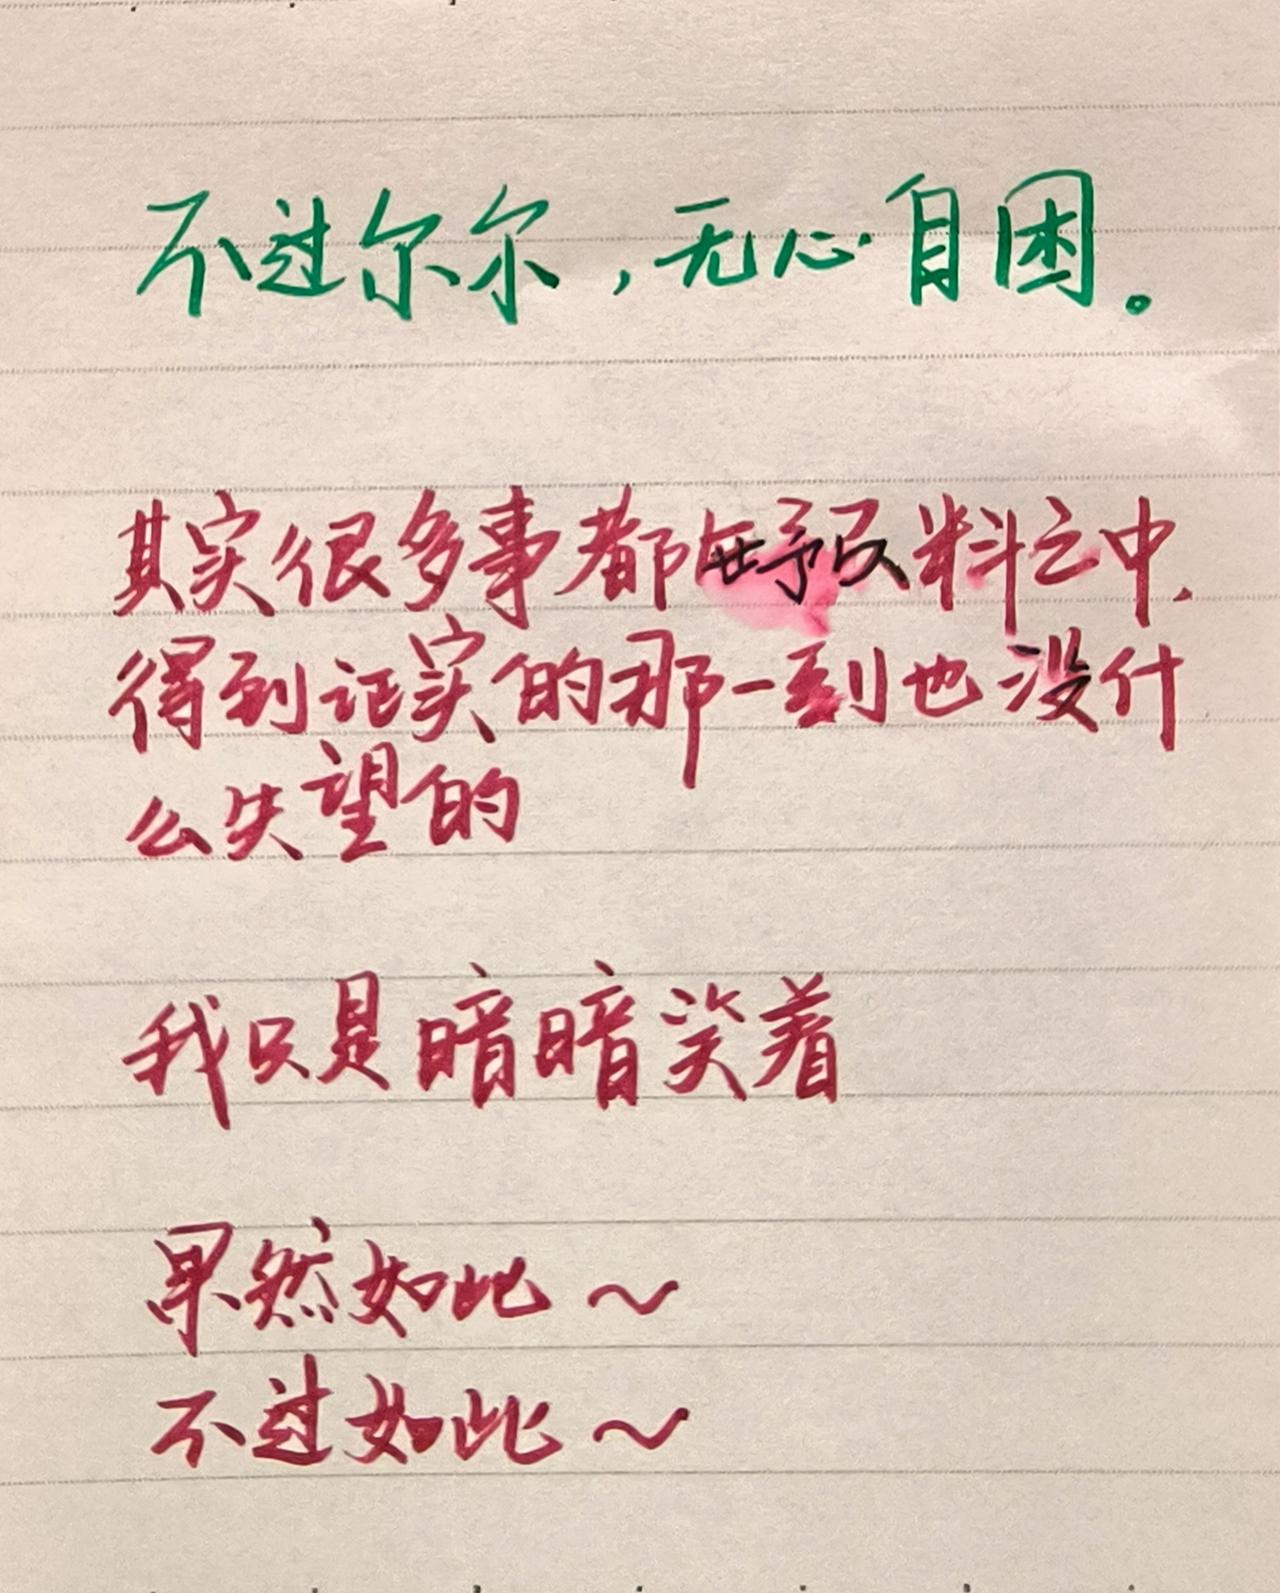 不过尔尔，无心自困。
其实很多事都在预料之中.
得到证实的那一刻也没什
么失望的
我只是暗暗笑着
果然如此～
不过如此～